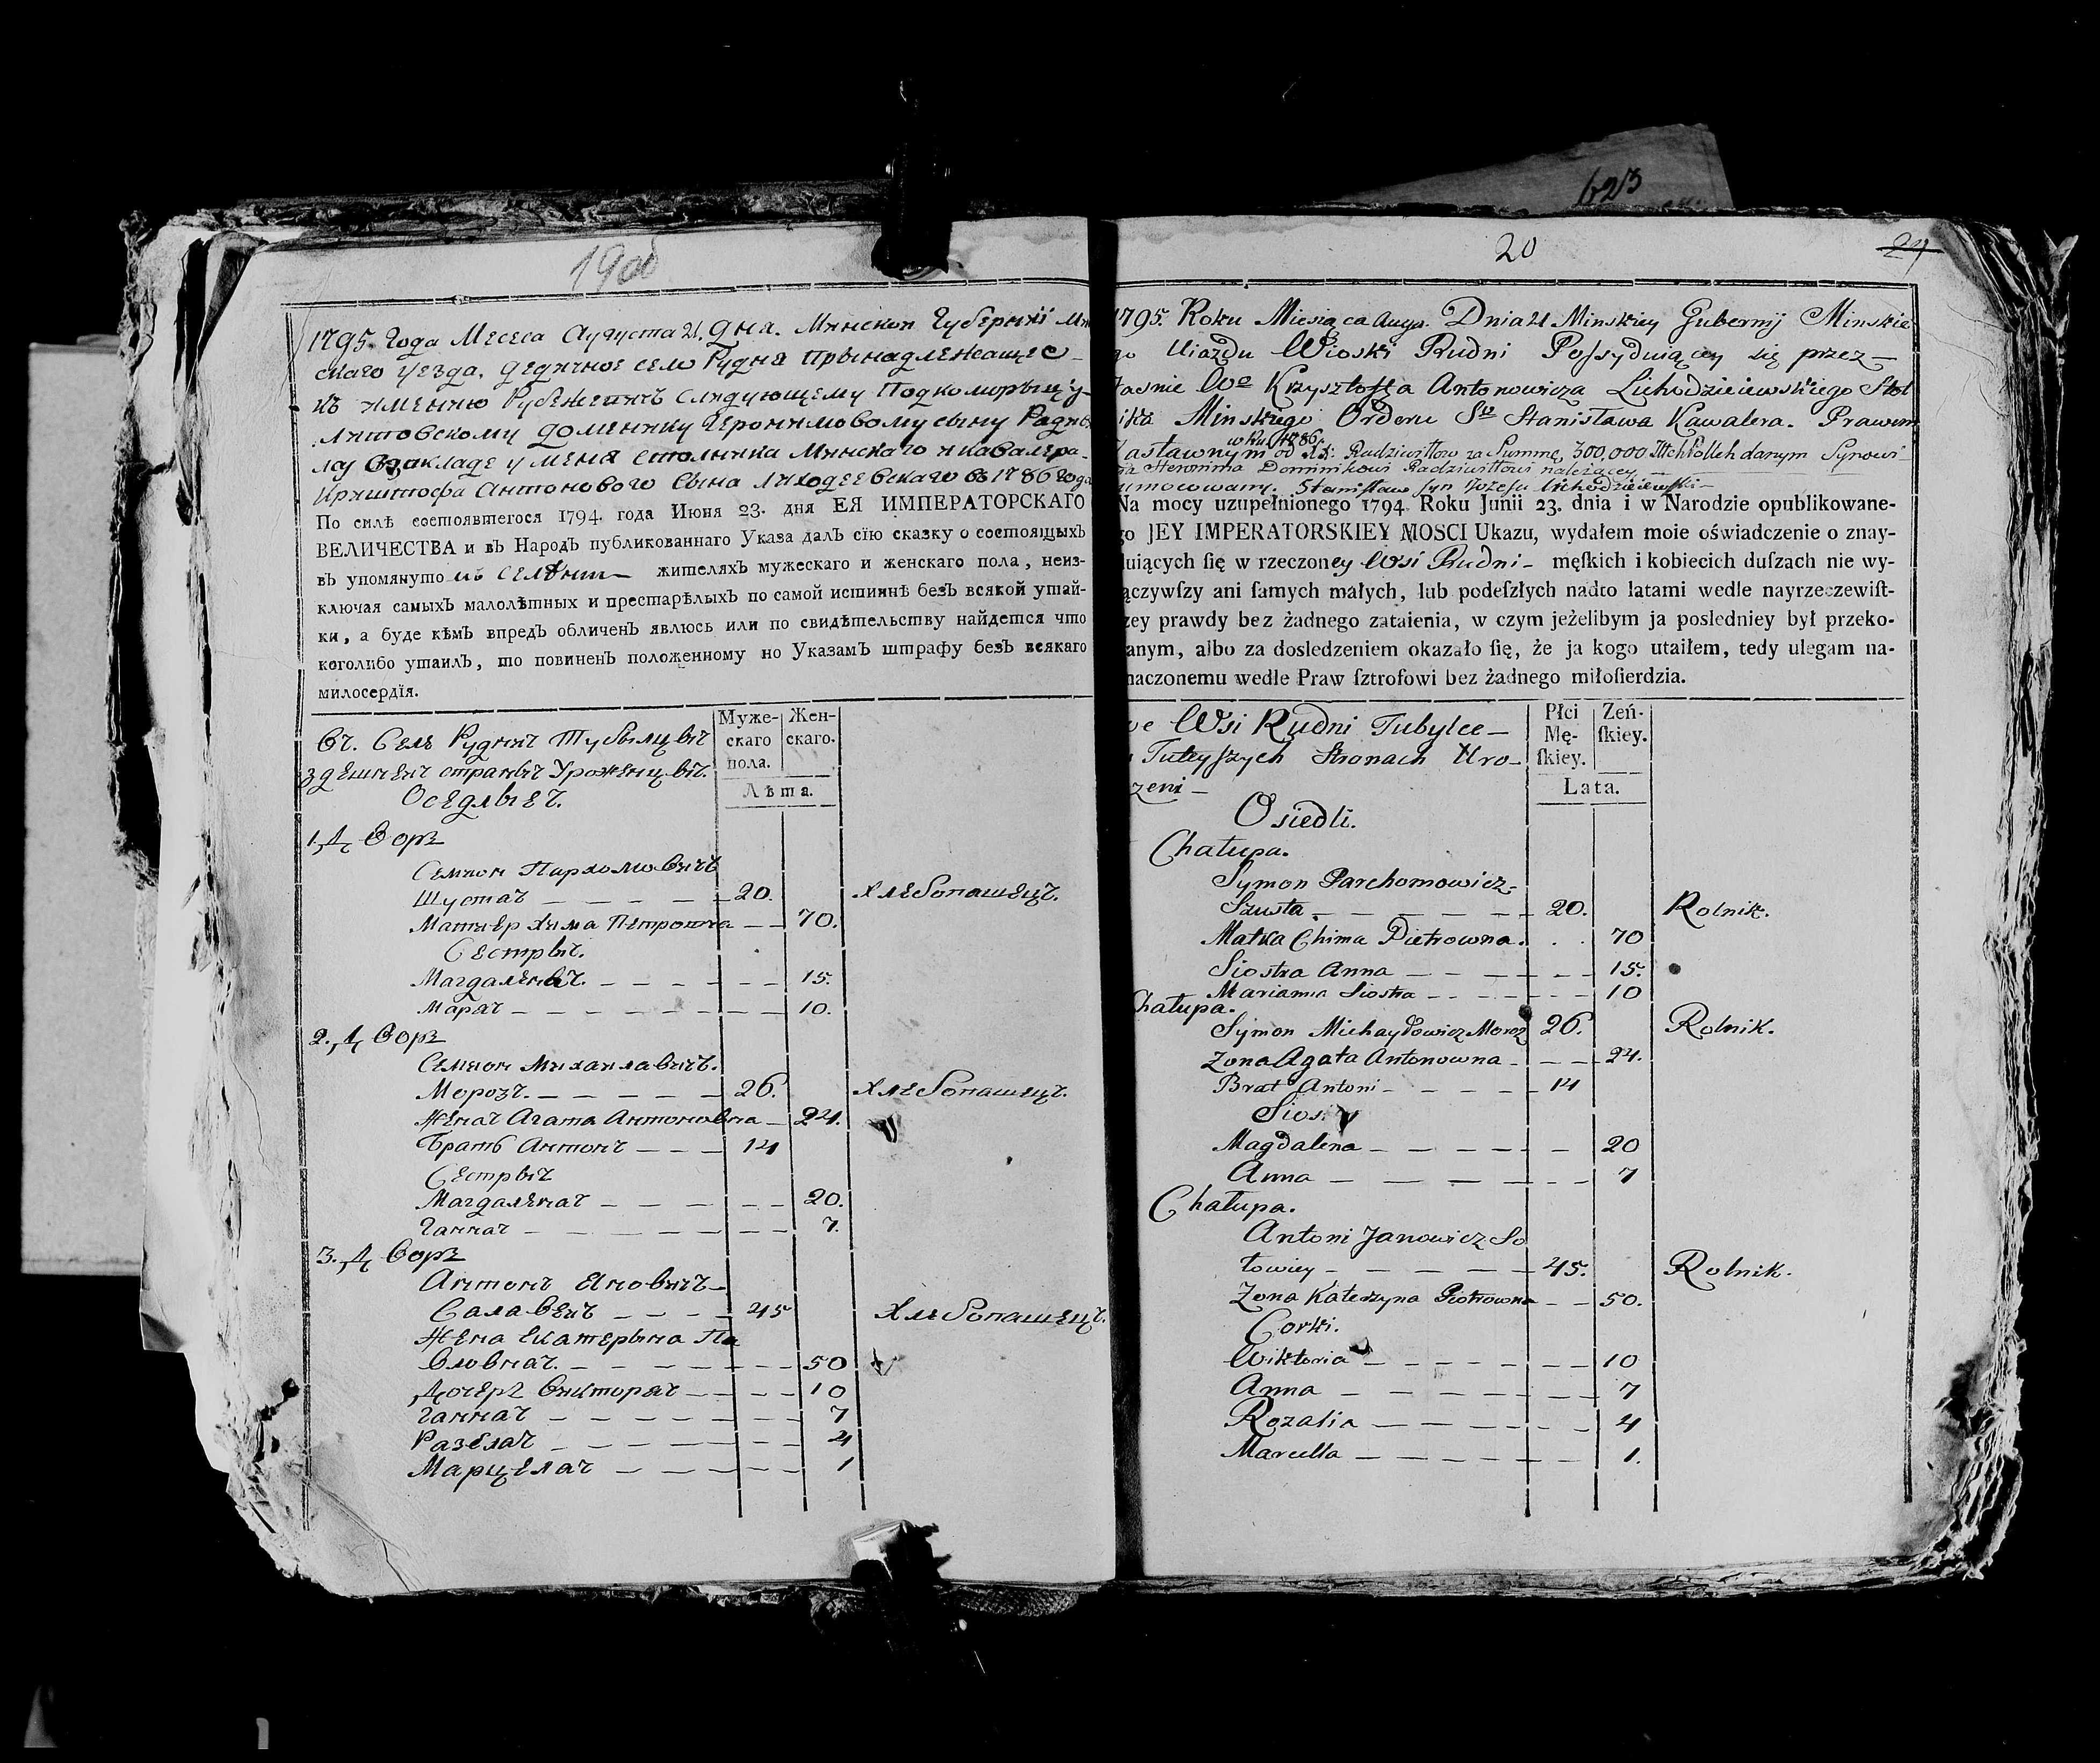 623
19об
1795. Года Месеса Аугуста 21. Дня. Минской Губерниі Мин
скаго уезда. Дедичное село Рудня Прынадлежащее
къ имению Рубежевичъ следующему Подкоморыцу
Литовскому Доменику Геронимовому сыну Радзи
лу взакладе у меня столника Минскаго и кавалера
Криштофа Антонового Сына Лиходеевскаго в 1786 Года
По силѣ состоявшегося 1794. года Июня 23. дня ЕЯ ИМПЕРАТОРСКАГО
ВЕЛИЧЕСТВА и въ Народъ публикованнаго Указа далъ сїю сказку о состоящыхъ
въ упомянуто мъ селѣнии жителяхъ мужескаго и женскаго пола, неиз-
ключая самыхъ малолѣтныхъ и престарѣлыхъ по самой истиннѣ безъ всякой утай-
ки, а буде кѣмъ впредъ обличенъ явлюсь или по свидѣтельству найдется что
коголибо утаилъ, то повиненъ положенному по Указамъ штрафу безъ всякаго
милосердїя.
Муже-
скаго
пола.
Жен-
скаго.
Лѣта.
Въ Селѣ Руднѣ Тубылцы
здешнеъ страны Уроженцы.
Оседлые.
1, Дворъ
Семион Пархомовичъ
Шуста 20. Хлебопашецъ.
Матиер Хима Петровна 70.
Сестры.
Магдалены. 15.
Мара 10.
2. Дворъ
Семион Михаилавичъ.
Морозъ. 26. Хлебопашецъ.
Жена Агата Антоновна 24.
Братъ Антонъ 14
Сестры
Магдалена 20.
Ганна 7.
3. Дворъ
Антонъ Яновичъ
Салавей 45 Хлебопашецъ.
Жена Екатерына Па
вловна. 50
Дочеръ Викторя 10
Ганна 7
Разеля 4
Марцеля 1
20
24
1795. Roku Miesiąca Augu. Dnia 21 Minskiey Gubernij Minskie
go Uiazdu Wioski Rudni Possyduiącey się przez
łasnie Wo Krzysztoffa Antonowicza Lichodzieiewskiego Stol
ika Minskiego Orderu Sto Stanisława Kawalera. Prawem
w Ru. 1786.
Zastawnym od XX: Radziwiłłow za Summę 300,000 Złch Polskh danym Synowi
Heronima Dominikowi Radziwiłłowi należącey
umocowany. Stanisław syn Jozefa Lichodzieiewski
Na mocy uzupełnionego 1794. Roku Junii 23. dnia i w Narodzie opublikowane-
go JEY IMPERATORSKIEY MOSCI Ukazu, wydałem moie oświadczenie o znay-
duiących ſię w rzeczoney Wsi Rudni męſkich i kobiecich duſzach nie wy-
ączywſzy ani ſamych małych, lub podeſzłych nadto latami wedle nayrzeczewiſt-
zey prawdy bez żadnego zataienia, w czym jeżelibym ja posledniey był przeko-
anym, albo za dosledzeniem okazało ſię, że ja kogo utaiłem, tedy ulegam na-
naczonemu wedle Praw ſztrofowi bez żadnego miłoſierdzia.
Płci
Mę-
ſkiey.
Zeń-
ſkiey.
Lata.
we Wsi Rudni Tubylce
Tuteyszych Stronach Uro-
zeni
Osiedli.
Chałupa.
Symon Parchomowicz
Szusta. 20. Rolnik.
Matka Chima Pietrowna. 70
Siostra Anna 15.
Marianna Siostra 10
Chałupa.
Symon Michayłowicz Moroz 26. Rolnik.
Zona Agata Antonowna 24.
Brat Antoni 14
Siostry
Magdalena 20
Anna 7
Chałupa.
Antoni Janowicz So
łowiey 45. Rolnik.
Zona Katerzyna Piotrowna 50.
Corki.
Wiktoria 10
Anna 7
Rozalia 4
Marcella 1.